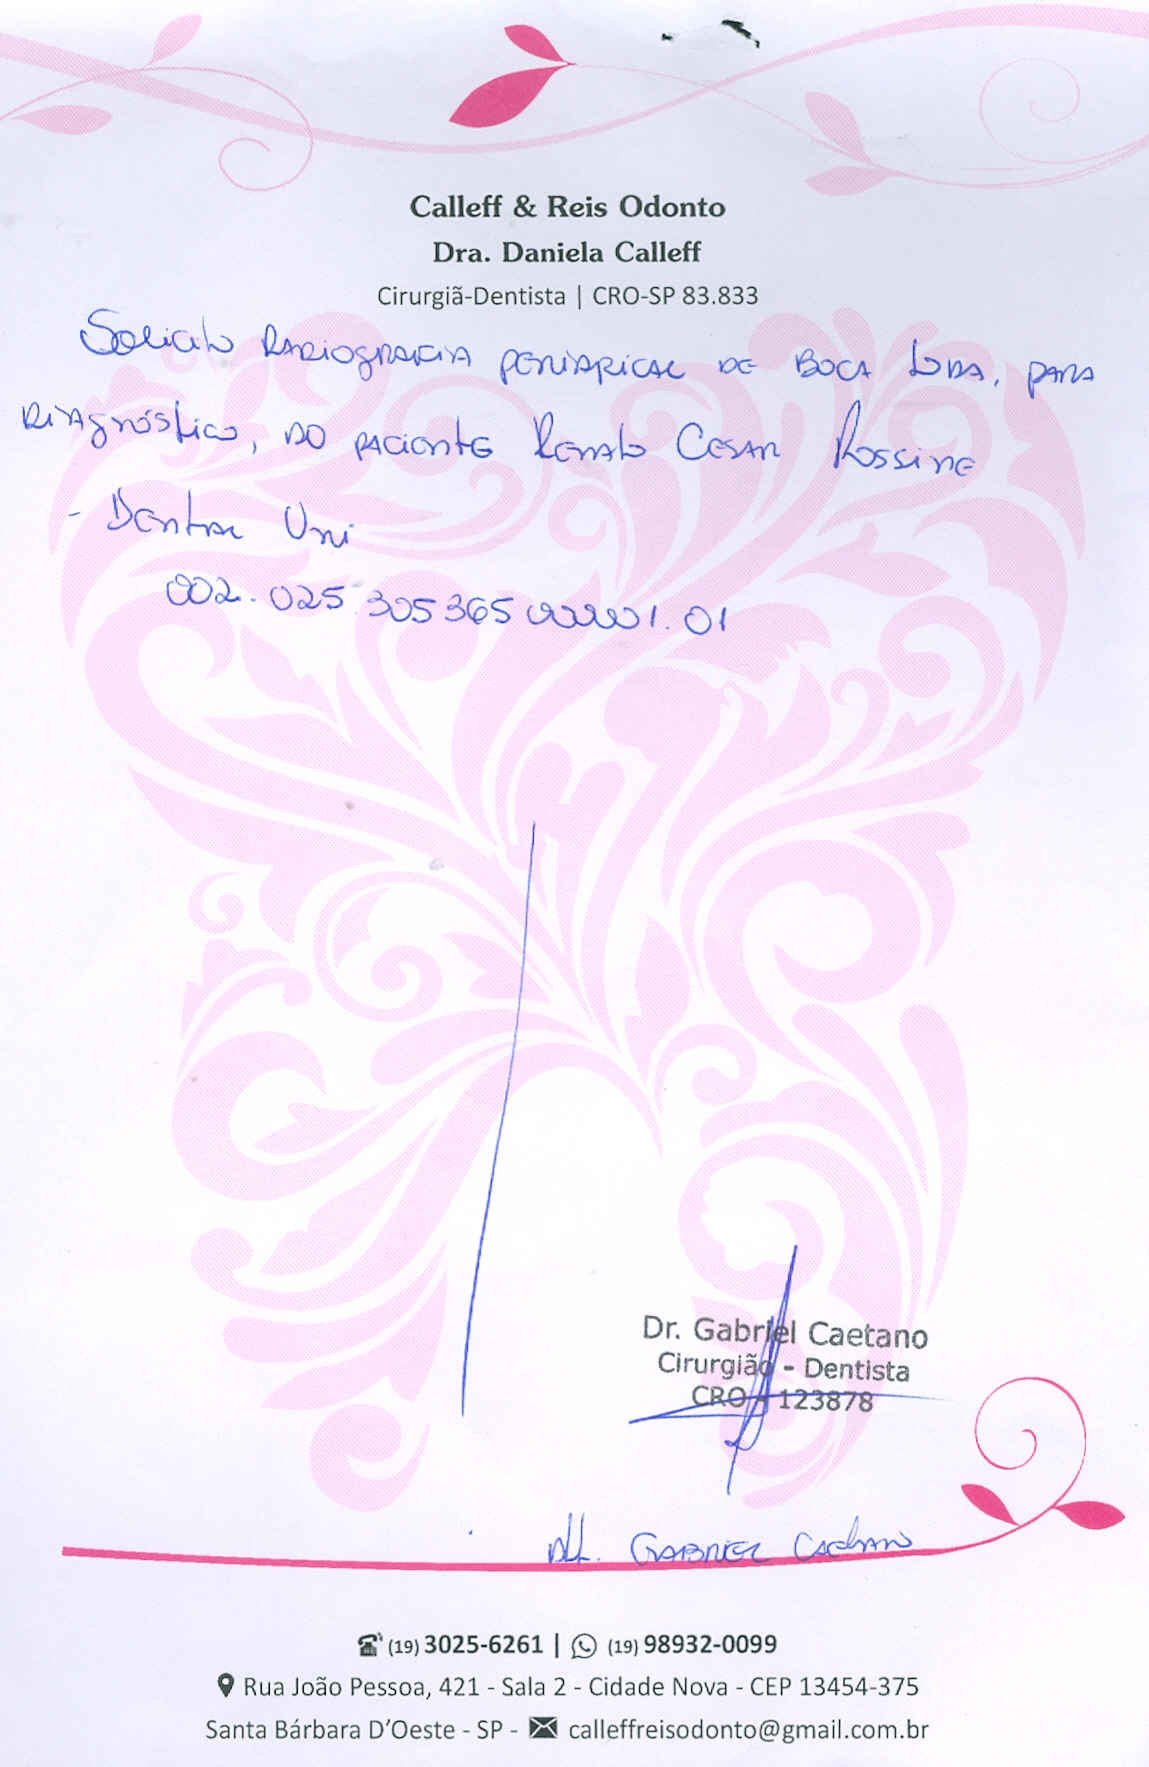 Calleff & Reis Odonto
Dra. Daniela Calleff
Cirurgiã-Dentista | CRO-SP 83.833
Solicito radiografia periapical de boca toda, para
diagnóstico, do paciente Renato Cesar Rossine
- Dental Uni
002.025.305365 000001.01
Dr. Gabriel Caetano
Cirurgião - Dentista
CRO - 123878
Att. Gabriel Caetano
(19) 3025-6261 | (19) 98932-0099
Rua João Pessoa, 421 - Sala 2 - Cidade Nova - CEP 13454-375
Santa Bárbara D'Oeste - SP - calleffreisodonto@gmail.com.br